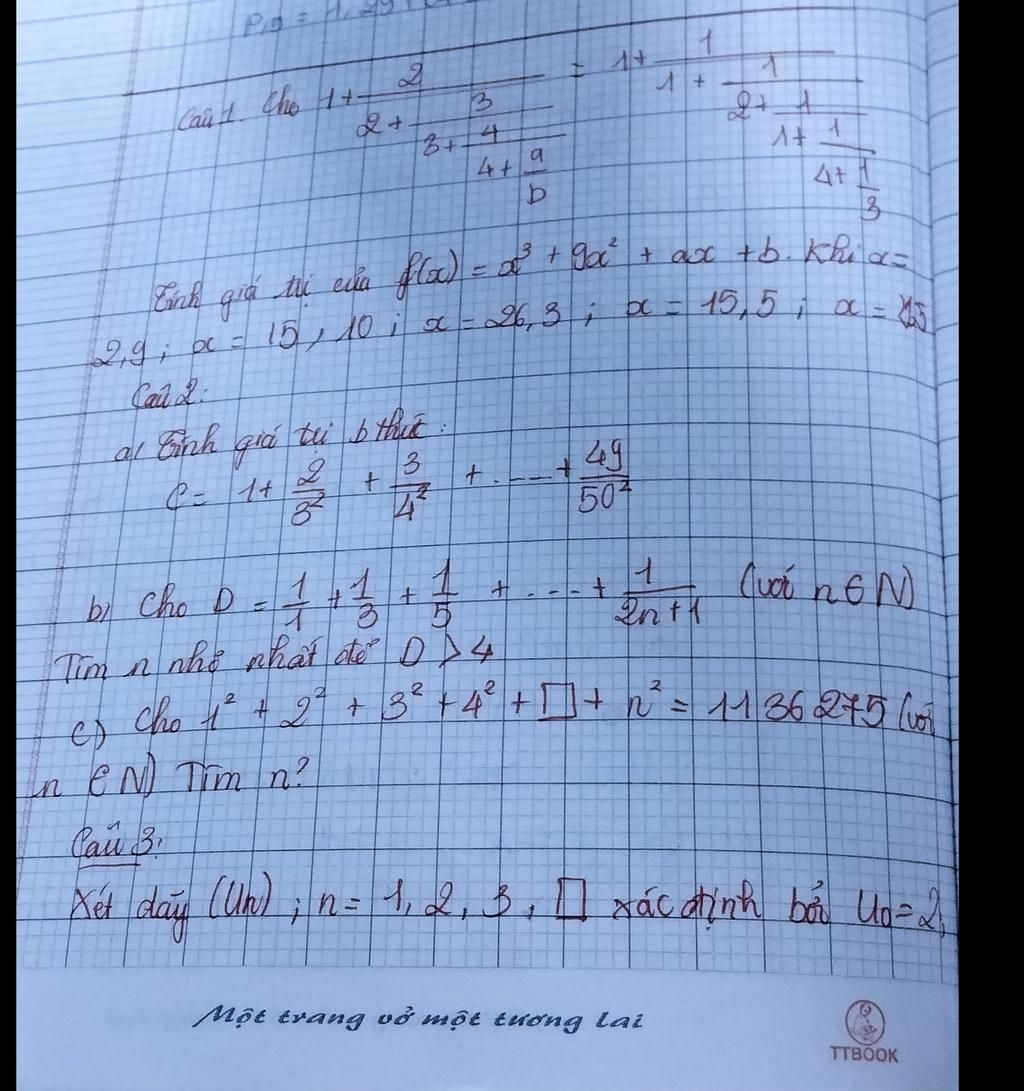 Câu 1. Cho 1+ 2/(2+ 3/(3+ 4/(4+ a/b))) = 1+ 1/(1+ 1/(2+ 1/(1+ 1/(4+ 1/3))))
Tính giá trị của f(x) = x³ + 9x² + ax + b. Khi x=
2,9; x = 15, 10; x = 26,3; x = 15,5; x =
Câu 2:
a) Tính giá trị b thức:
C = 1+ 2/3² + 3/4² + ...+ 49/50²
b) Cho D = 1/1 + 1/3 + 1/5 + ... + 1/(2n+1) (với n ∈ N)
Tìm n nhỏ nhất để D > 4
c) Cho 1² + 2² + 3² + 4² + □ + n² = 1136275 (với
n ∈ N) Tìm n?
Câu 3:
Xét dãy (Un); n = 1, 2, 3, □ xác định bởi U0=2,
Một trang vở một tương lai
TTBOOK